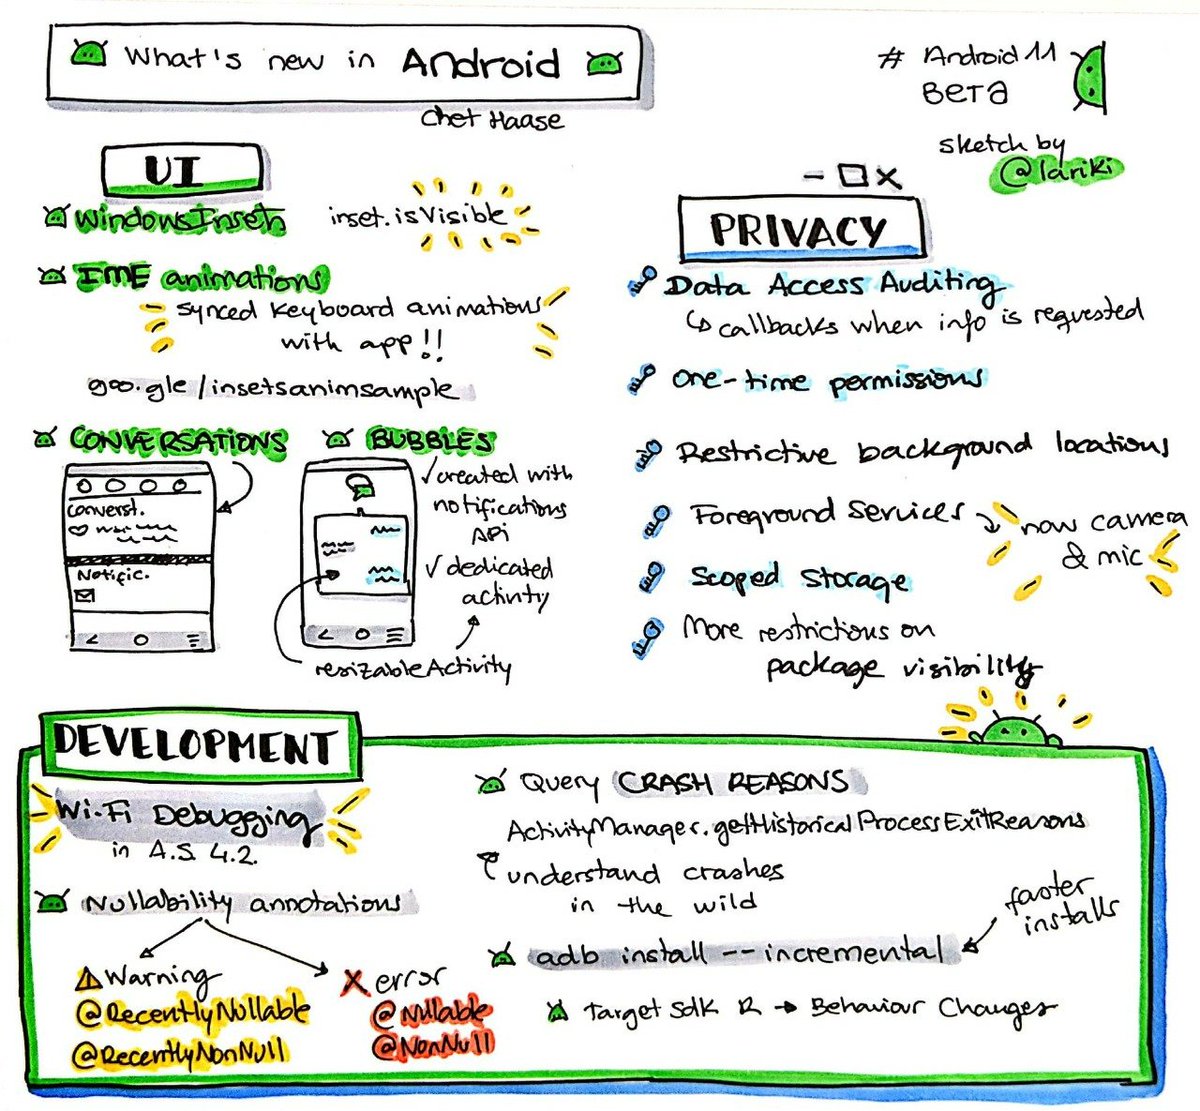 What's new in Android
Chet Haase
# Android 11
BETA
sketch by
@lariki
UI
WindowsInsets
inset.isVisible
IME animations
synced keyboard animations
with app!!
goo.gle/insetsanimsample
CONVERSATIONS
Converst.
Notific.
BUBBLES
✓created with
notifications
API
✓dedicated
activity
resizableActivity
PRIVACY
Data Access Auditing
↳ callbacks when info is requested
One-time permissions
Restrictive background locations
Foreground Services → now camera
& mic
Scoped Storage
More restrictions on
package visibility
DEVELOPMENT
Wi-Fi Debugging
in A.S. 4.2.
Nullability annotations
Warning
@RecentlyNullable
@RecentlyNonNull
X error
@Nullable
@NonNull
Query CRASH REASONS
ActivityManager.getHistoricalProcessExitReasons
understand crashes
in the wild
faster
installs
adb install --incremental
Target Sdk R → Behaviour Changes